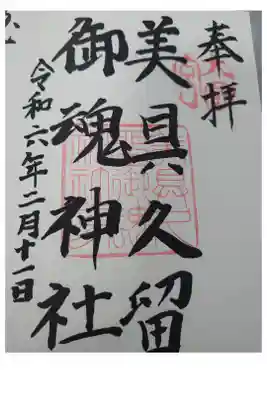 奉拝
美具久留
御魂神社
令和六年二月十一日